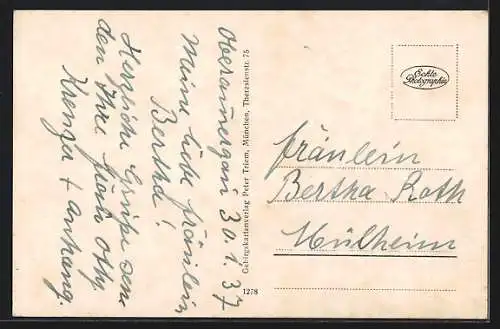 Oberammergau 30.1.37
Meine liebe Fräulein
Bertha!
Herzliche Grüße sen
den Ihre
Krenzer + Anhang.
Gebirgskartenverlag Peter Triem, München, Theresienstr. 75
1278
Echte
Photographie
Fräulein
Bertha Roth
Mülheim